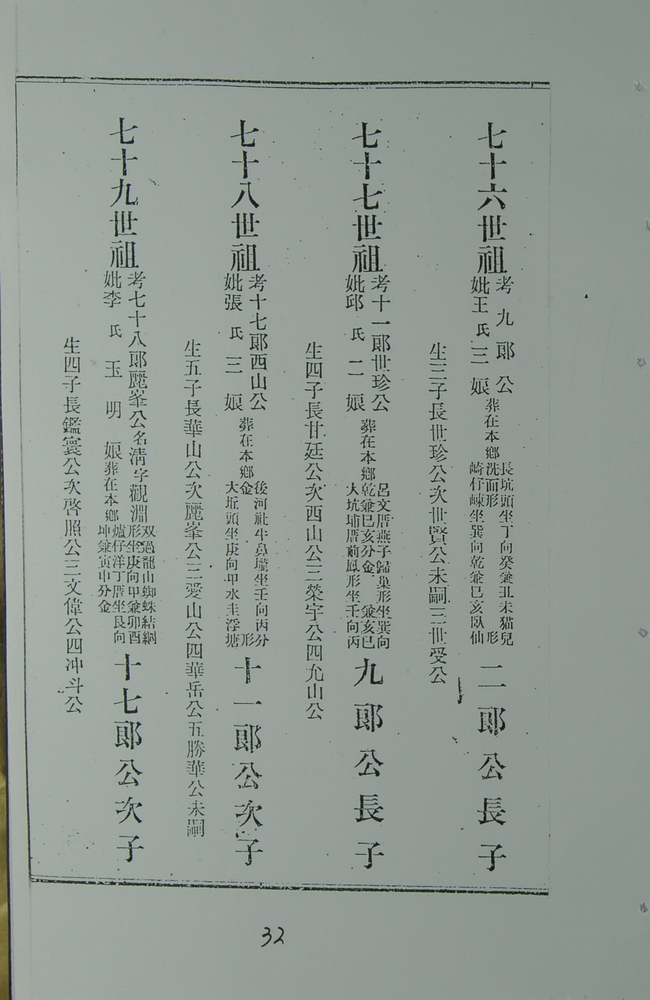 七十六世祖
考九郎公
妣王氏三娘
葬在本鄉
長坑頭坐丁向癸兼丑未貓兒洗面形
崎仔崠坐巽向乾兼巳亥臥仙形
二郎公長子
生三子長世珍公次世賢公未嗣三世受公
七十七世祖
考十一郎世珍公
妣邱氏二娘
葬在本鄉
呂文厝燕子歸巢形坐巽向乾兼巳亥分金
大坑埔厝前鳳形坐壬向丙兼亥巳
九郎公長子
生四子長甘廷公次西山公三榮宇公四允山公
七十八世祖
考十七郎西山公
妣張氏三娘
葬在本鄉
後河社牛鼻壠坐壬向丙分金
大坵頭坐庚向甲水圭浮塘形
十一郎公次子
生五子長華山公次麗峯公三愛山公四華岳公五勝華公未嗣
七十九世祖
考七十八郎麗峯公名清字觀淵
妣李氏玉明娘葬在本鄉
双過龍山蜘蛛結網形坐庚向甲兼卯酉
爐仔洋丁厝坐艮向坤兼寅申分金
十七郎公次子
生四子長鑑寰公次啓照公三文偉公四冲斗公
32